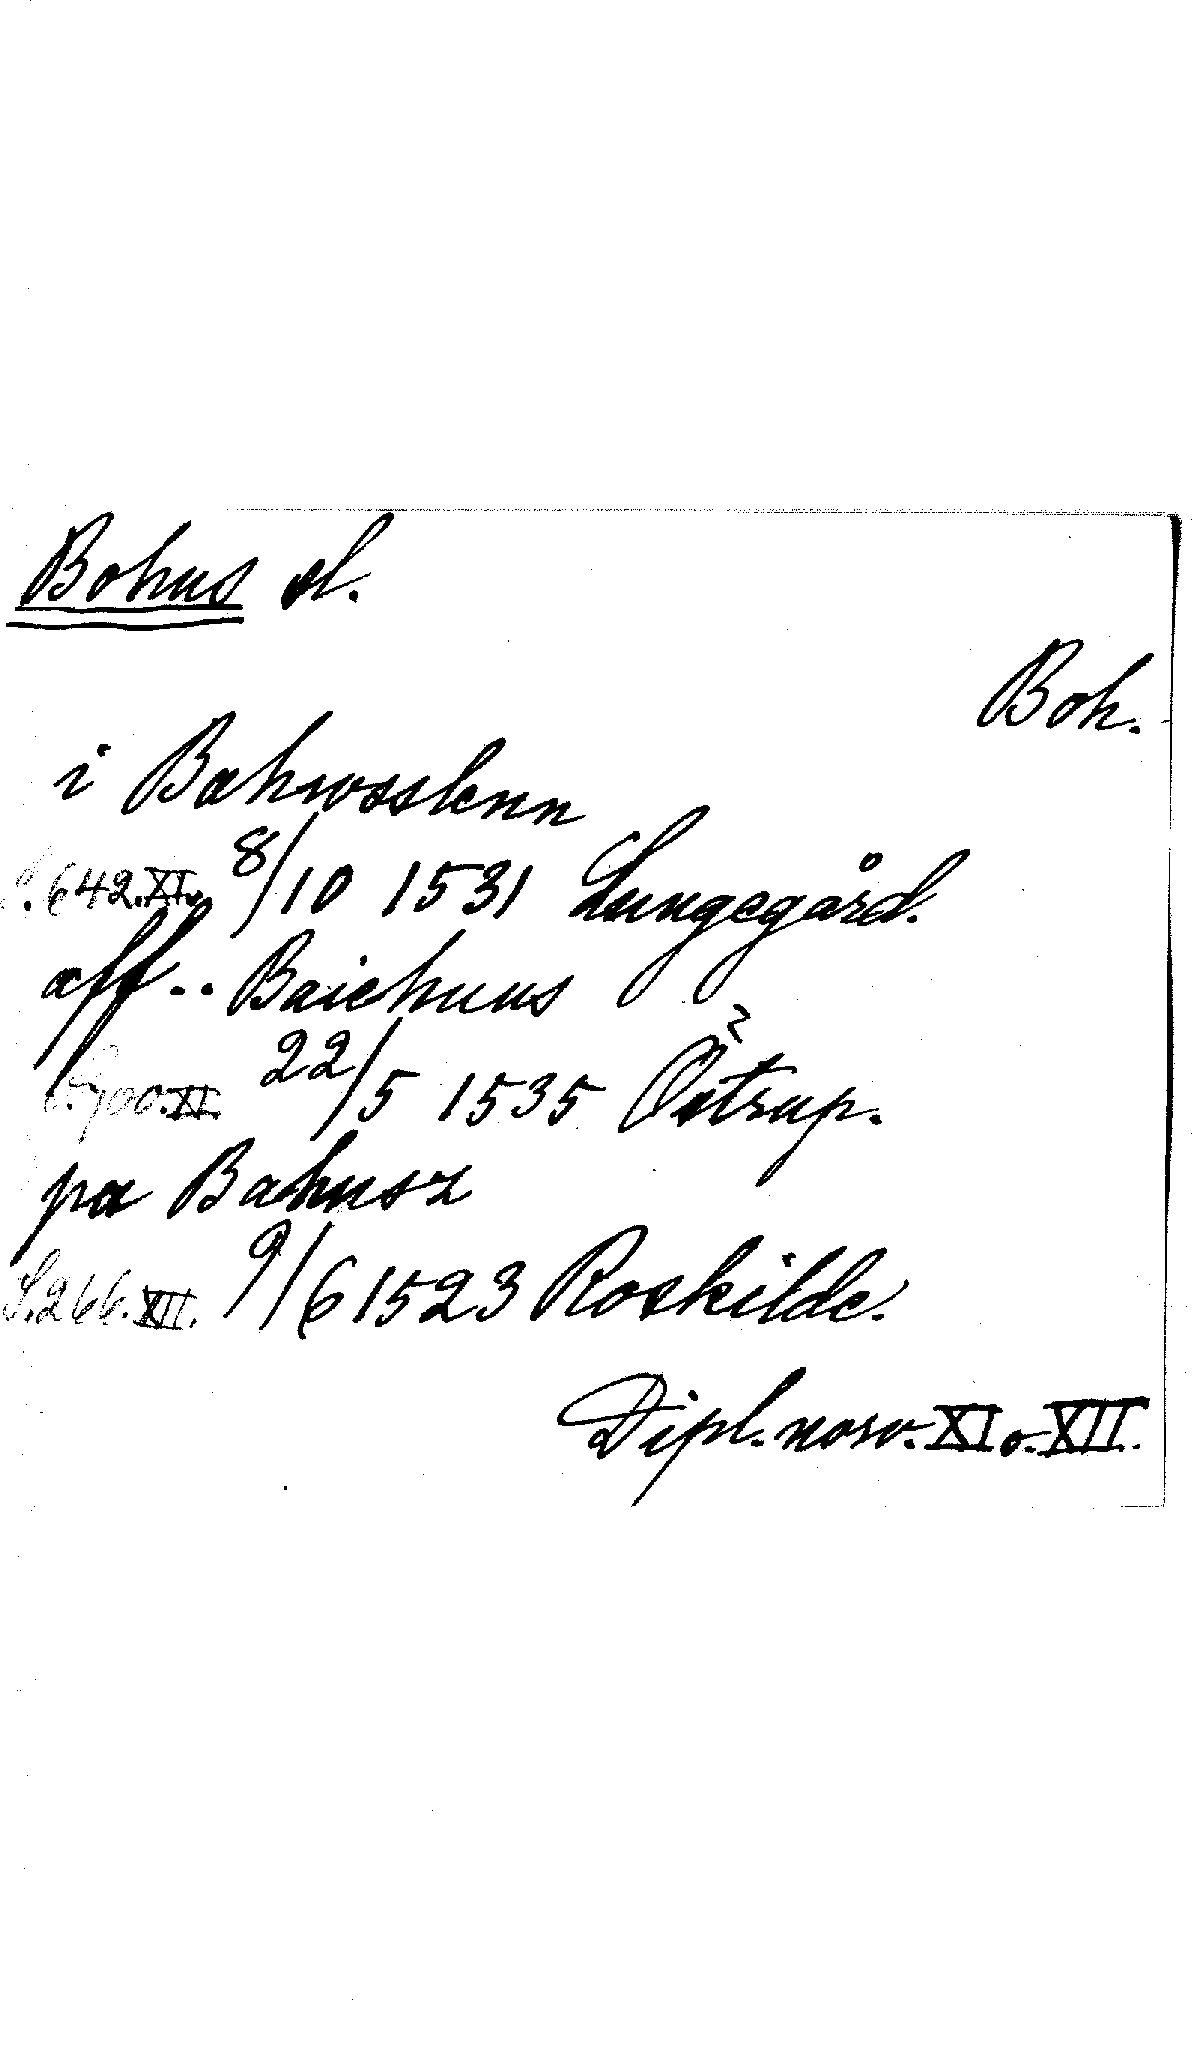 Bohus sl.
Boh.
i Bahwsslenn
S. 642. XI. 8/10 1531 Lungegård.
aff.. Baichuus
S. 700. XI. 22/5 1535 Östrup.
pa Bahusz
S. 266. XII. 9/6 1523 Roskilde.
Dipl. norv. XI o. XII.